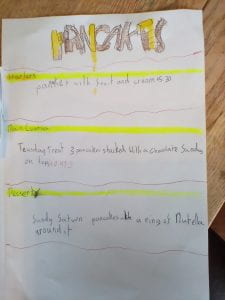 PANCAKES
Starters
pancket with fruit and cream 15:30
Main Course
Tuesday Treat 3 pancakes stacked With a chocolate Sunday
on top
Dessert
Sundy Saturn pancakes a ring of Nutella
around it